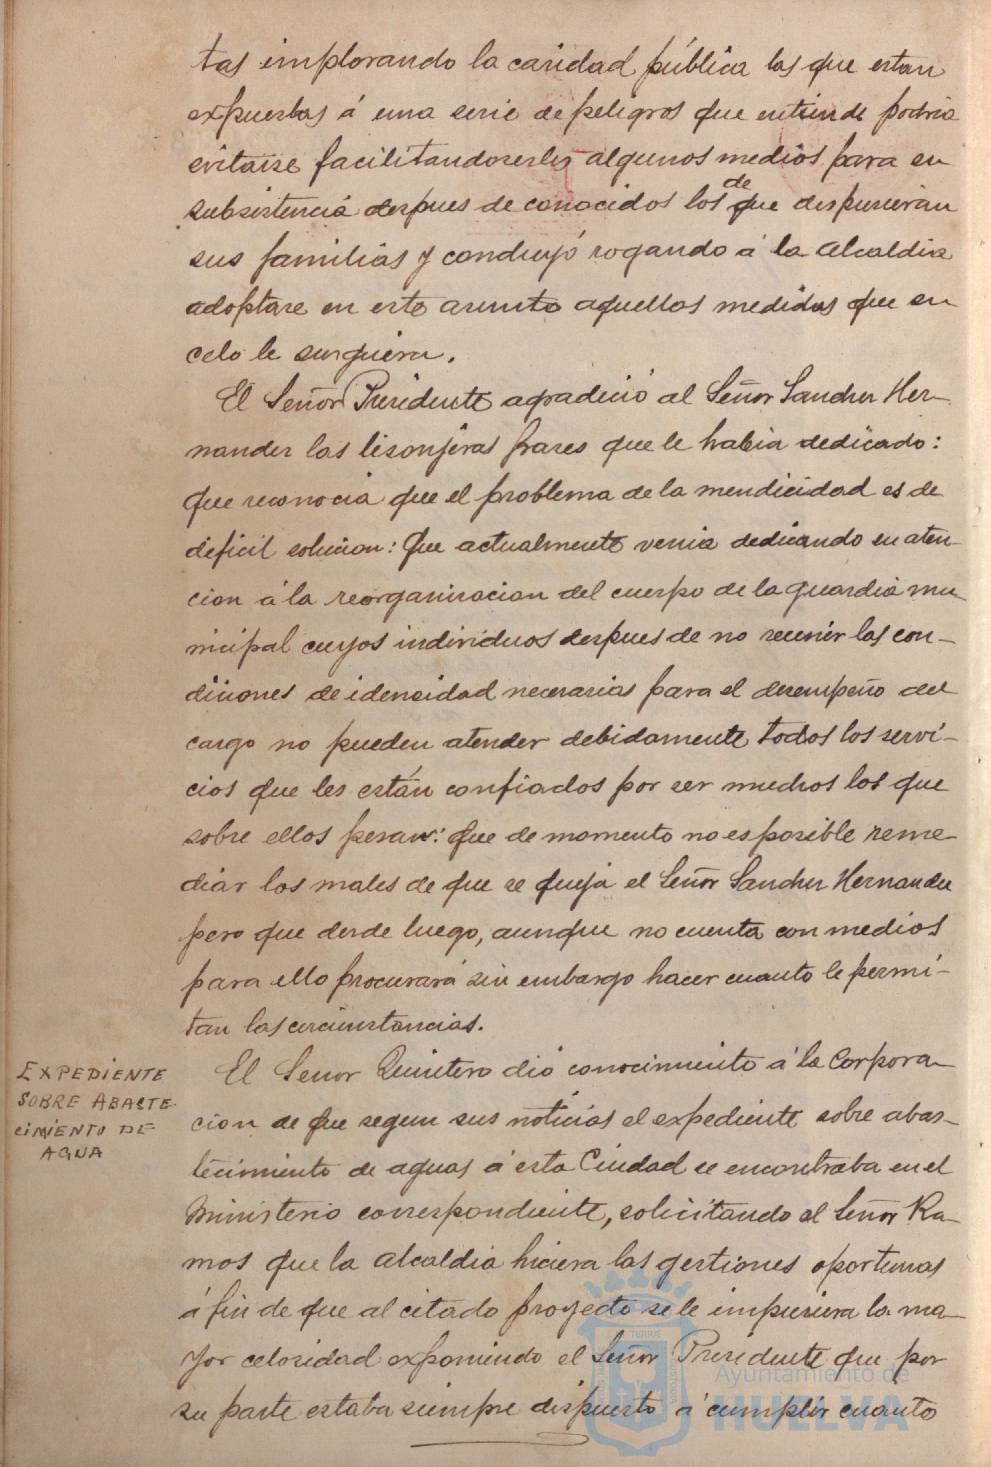 tas implorando la caridad pública las que estan
expuestas á una serie de peligros que entiende podria
evitarse facilitandoserles algunos medios para su
subsistencia despues de conocidos los de que dispusieran
sus familias y concluyó rogando á la Alcaldia
adoptase en este asunto aquellas medidas que su
celo le surguiera.
El Señor Presidente agradeció al Señor Sanchez Her-
nandez las lisonjeras frases que le habia dedicado:
que reconocia que el problema de la mendicidad es de
deficil solucion: Que actualmente venia dedicando su aten-
cion á la reorganizacion del cuerpo de la guardia mu-
nicipal cuyos individuos despues de no reunir las con-
diciones de idencidad necesarias para el desempeño del
cargo no pueden atender debidamente todos los servi-
cios que les están confiados por ser muchos los que
sobre ellos pesan: que de momento no es posible reme-
diar los males de que se queja el Señor Sanchez Hernandez
pero que desde luego, aunque no cuenta con medios
para ello procurará sin embargo hacer cuanto le permi-
tan las circunstancias.
EXPEDIENTE
SOBRE ABASTE-
CIMIENTO DE
AGUA
El Señor Quintero dió conocimiento á la Corpora-
cion de que segun sus noticias el expediente sobre abas-
tecimiento de aguas á esta Ciudad se encontraba en el
Ministerio correspondiente, solicitando el Señor Ra-
mos que la Alcaldia hiciera las gestiones oportunas
á fin de que al citado proyecto se le impusiera la ma-
yor celosidad exponiendo el Señor Presidente que por
su parte estaba siempre dispuesto á cumplir cuanto
Ayuntamiento de
HUELVA